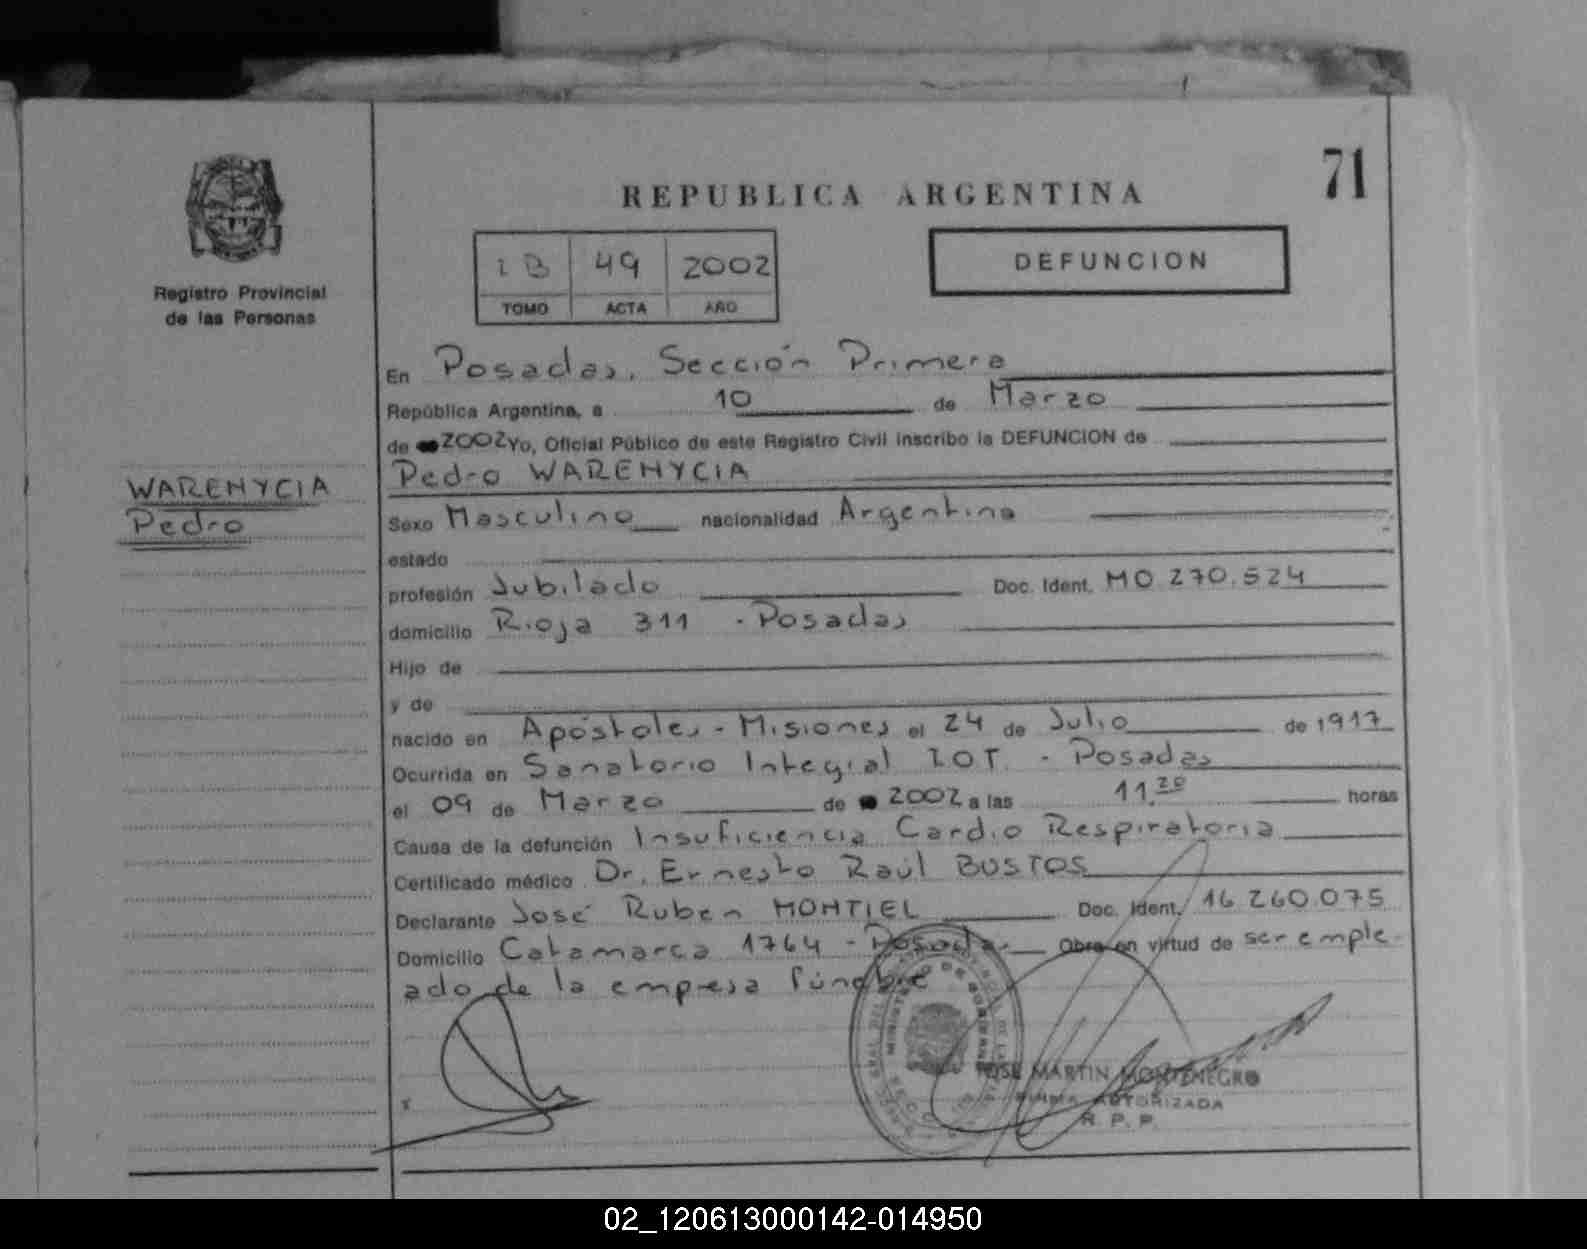 71
REPUBLICA ARGENTINA
Registro Provincial
de las Personas
1B 49 2002
TOMO ACTA AÑO
DEFUNCION
En Posadas, Sección Primera
República Argentina, a 10 de Marzo
de 2002 Yo, Oficial Público de este Registro Civil inscribo la DEFUNCION de
Pedro WARENYCIA
WARENYCIA
Pedro
Sexo Masculino nacionalidad Argentina
estado
profesión Jubilado Doc. Ident. M0.270.524
domicilio Rioja 311 - Posadas
Hijo de
y de
nacido en Apóstoles - Misiones el 24 de Julio de 1917
Ocurrida en Sanatorio Integral IOT. - Posadas
el 09 de Marzo de 2002 a las 11.20 horas
Causa de la defunción Insuficiencia Cardio Respiratoria
Certificado médico Dr. Ernesto Raúl BUSTOS
Declarante José Ruben MONTIEL Doc. Ident. 16.260.075
Domicilio Catamarca 1764 - Posadas Obra en virtud de ser emple-
ado de la empresa fúnebre
JOSE MARTIN MONTENEGRO
FIRMA AUTORIZADA
R. P. P.
02_120613000142-014950